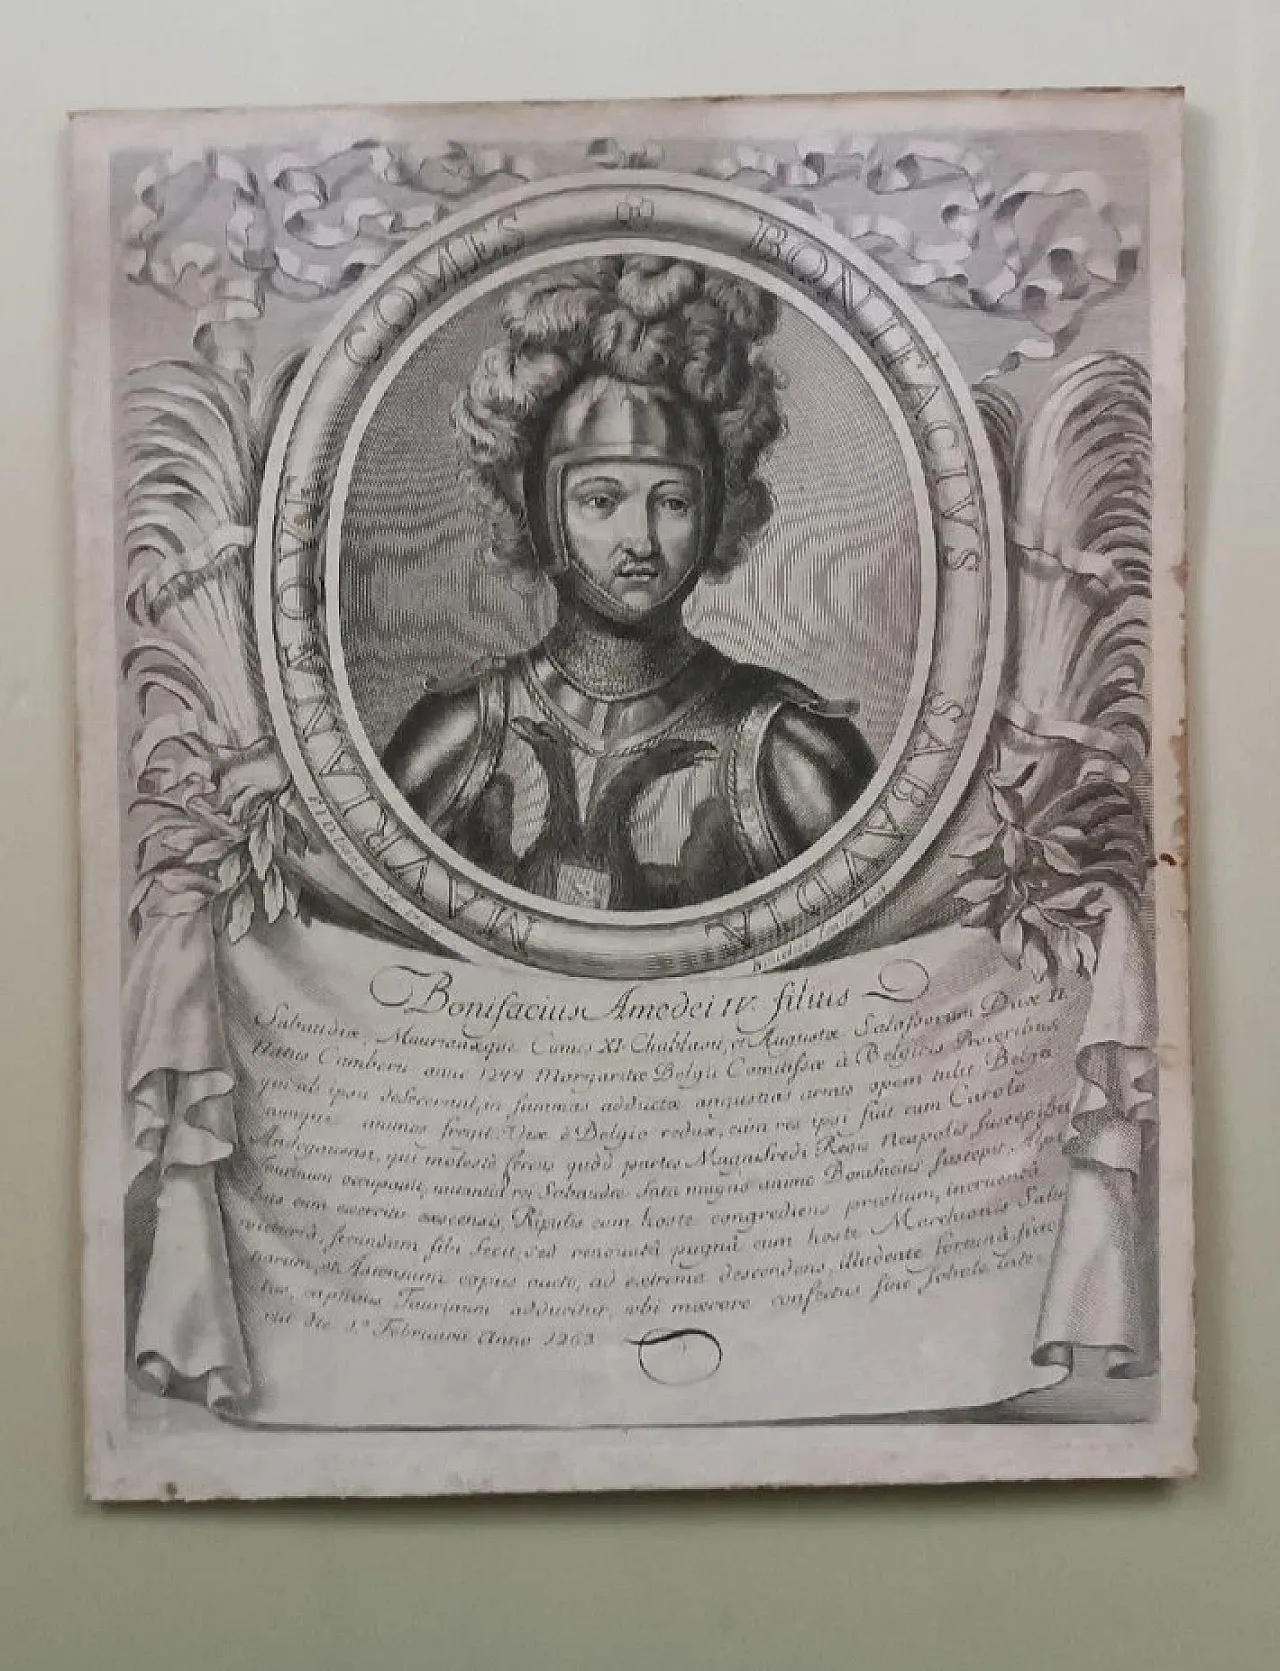 BONIFACIVS SABAVDIÆ
MAVRIANÆ QVE COMES
Bonifacius Amedei IV. filius
Sabaudiæ, Maurianæque Comes XI Chablasii, et Augustæ Salassorum Dux II
Natus Camberii anno 1244 Margaritæ Belgii Comitissæ à Belgicis Proceribus
qui ab ipsa desecerant, in summas adductæ angustias armis opem tulit Belga
rumque animos fregit. Vix è Belgio redux, cùm res ipsi fuit cum Carolo
Andegauensi, qui molestè ferens quòd partes Magnifredi Regis Neapolis suscepisset
Taurinum occupauit, nutantia rei Sabaudæ fata magno animo Bonifacius suscepit, Alpi
bus cum exercitu descensis Ripulis cum hoste congrediens prœlium, incruentâ
victoriâ, secundum sibi fecit, sed renouatâ pugnâ cum hoste Marchionis Salu
tiarum, et Astensium copiis aucto, ad extrema descendens, illudente fortunâ, frac
tus, captiuus Taurinum adducitur, ubi mœrore confectus sine sobole, inte
riit die 1.ª Februarii Anno 1263